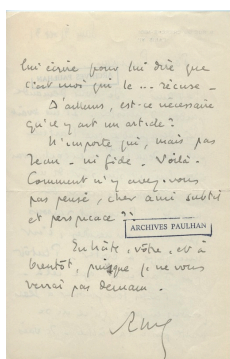 lui écrire pour lui dire que
c'est moi qui le ... récuse -
D'ailleurs, est-ce nécessaire
qu'il y ait un article ?
N'importe qui, mais pas
Jean - ni Gide. Voilà.
Comment n'y avez-vous
pas pensé, cher ami subtil
et perspicace ?
ARCHIVES PAULHAN
En hâte, vôtre, et à
bientôt, puisque je ne vous
verrai pas demain.